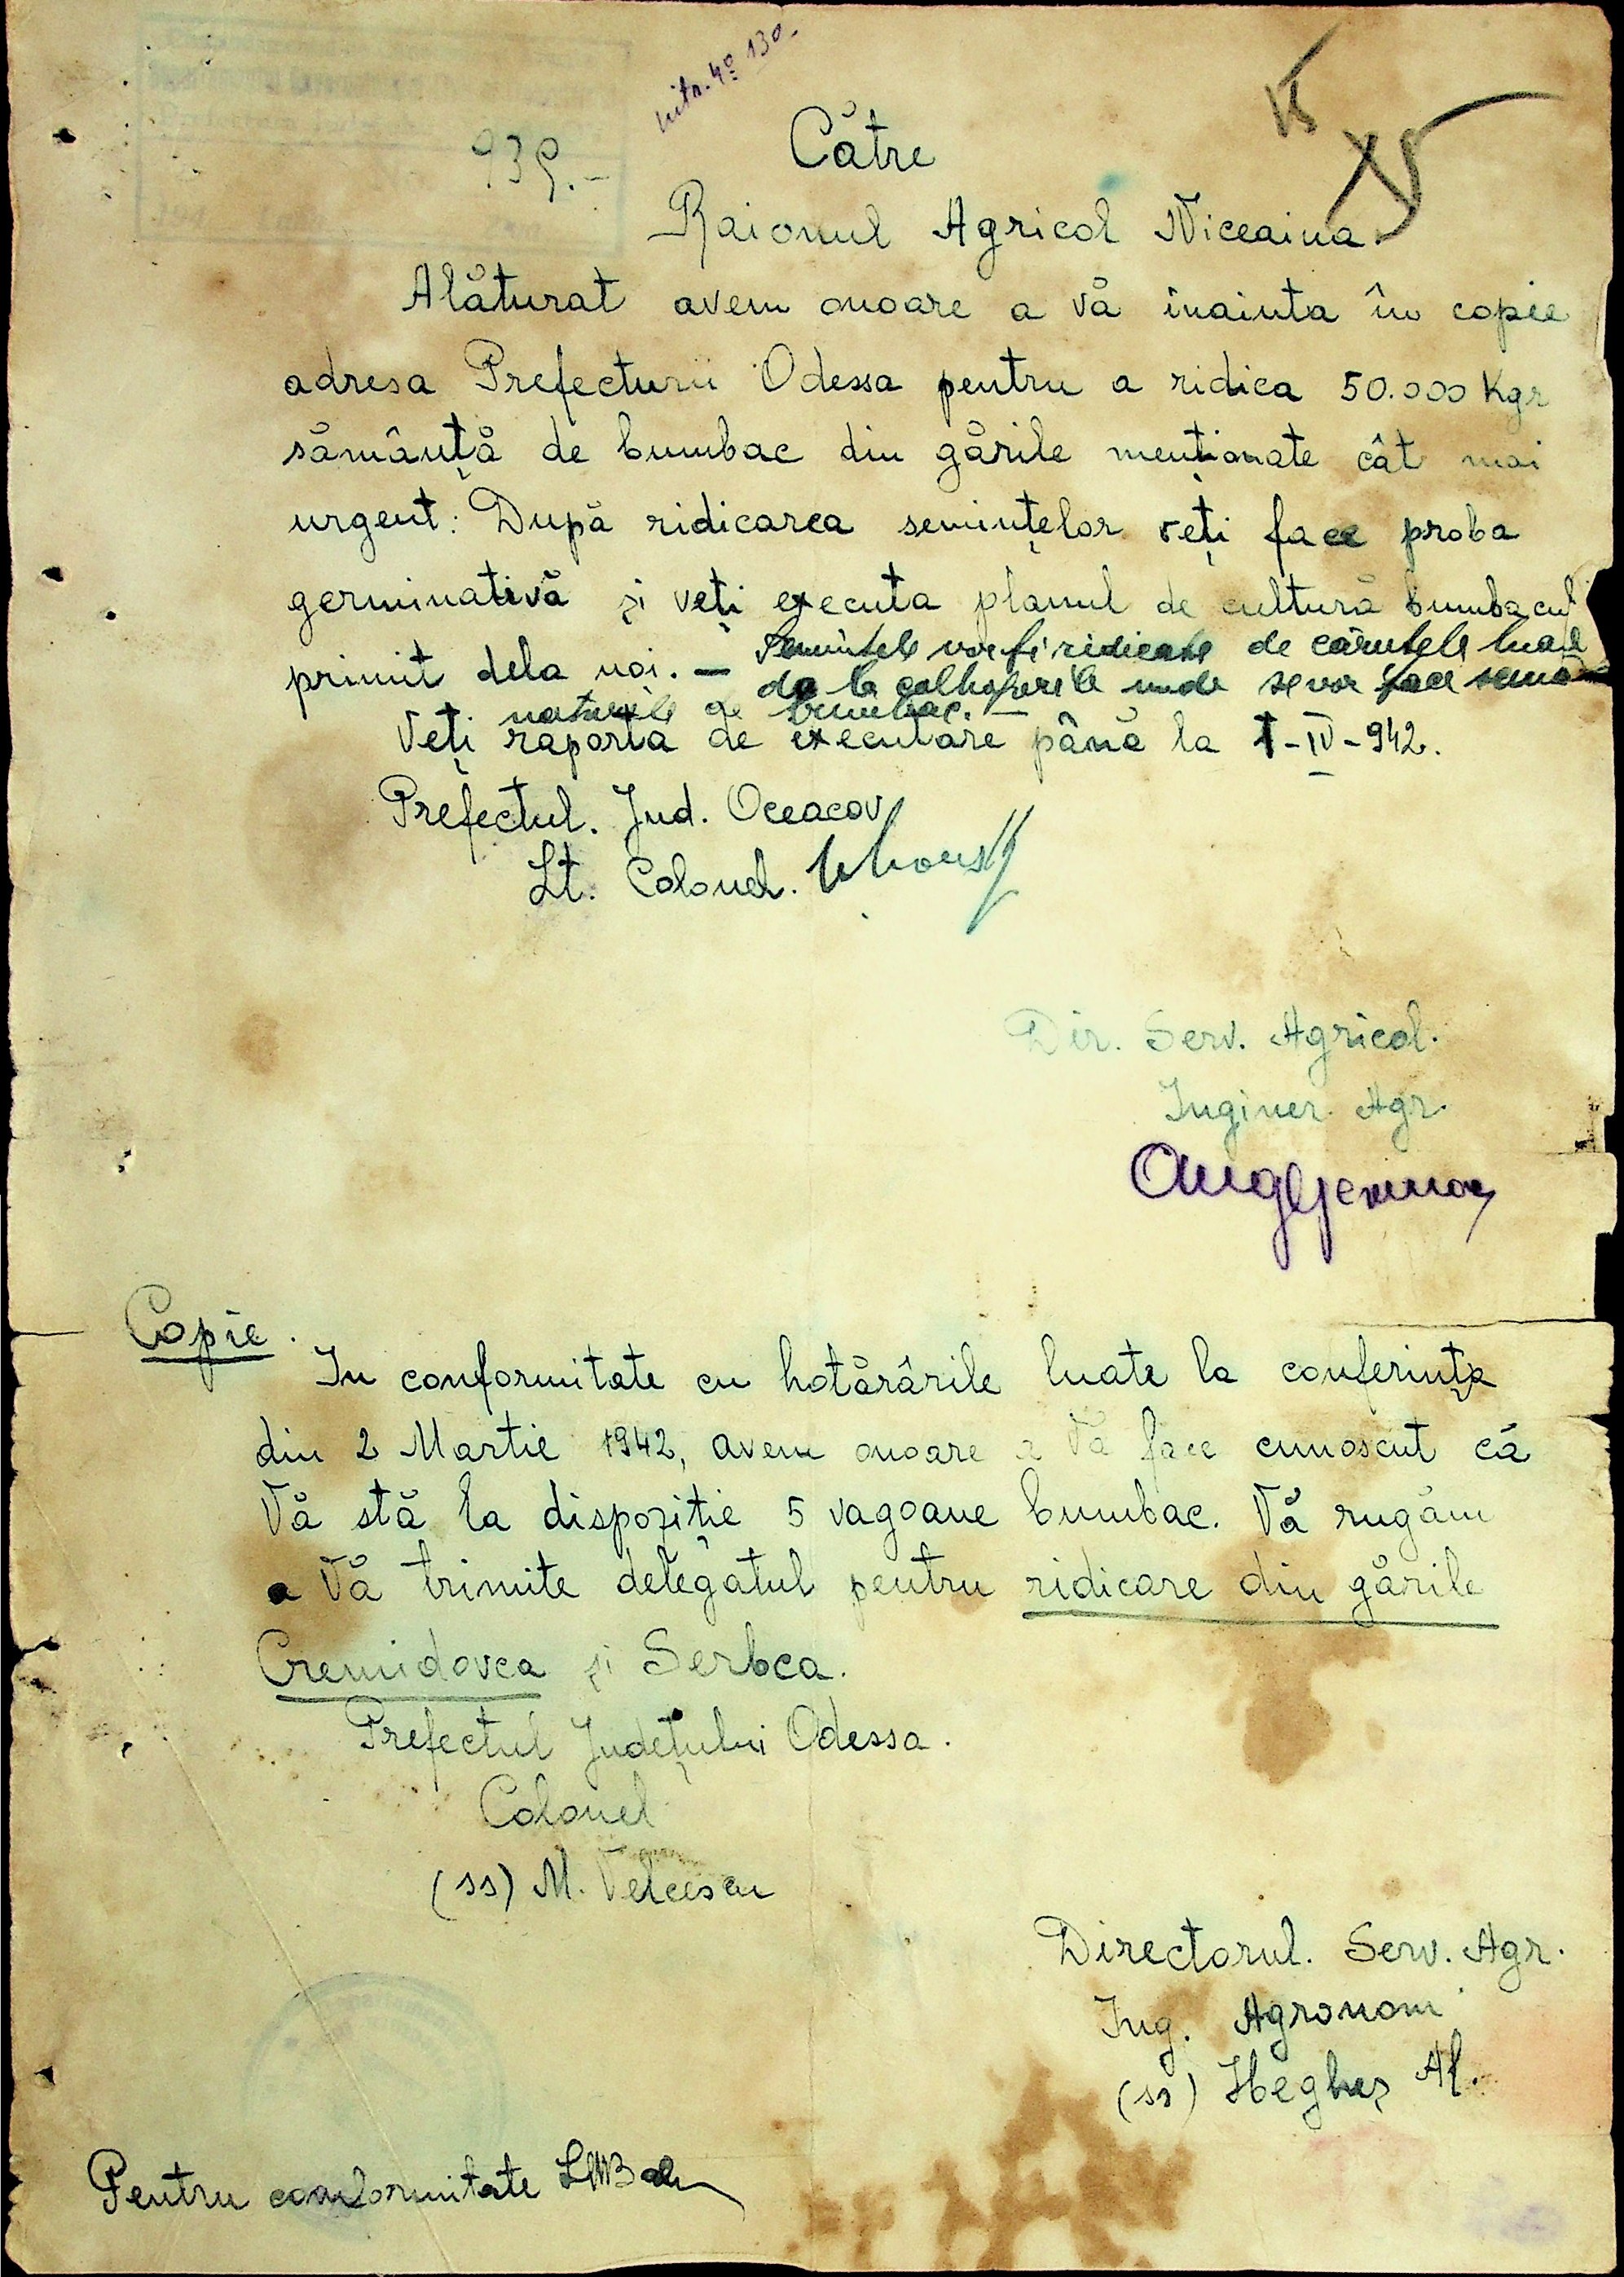 939.-
Către
Raionul Agricol Niceaina.
Alăturat avem onoare a vă înainta în copie
adresa Prefecturii Odessa pentru a ridica 50.000 Kgr
sămânță de bumbac din gările menționate cât mai
urgent. După ridicarea semințelor veți face proba
germinativă și veți executa planul de cultură bumbacul
primit dela noi. — Semintele vor fi ridicate de cărutele luate
de la colhozurile unde se vor face semă-
naturile de bumbac. —
Veți raporta de executare până la 1-IV-942.
Prefectul. Jud. Oceacov
Lt. Colonel.
Dir. Serv. Agricol.
Inginer Agr.
Copie.
In conformitate cu hotărârile luate la conferința
din 2 Martie 1942, avem onoare a Vă face cunoscut că
Vă stă la dispoziție 5 vagoane bumbac. Vă rugăm
a Vă trimite delegatul pentru ridicare din gările
Cremidovca și Serbca.
Prefectul Județului Odessa.
Colonel
(ss) M. Velcescu
Directorul. Serv. Agr.
Ing. Agronom
(ss) Hegheș Al.
Pentru conformitate